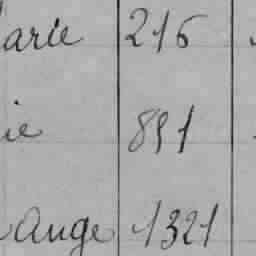 arie 216
ie 891
Ange 1321